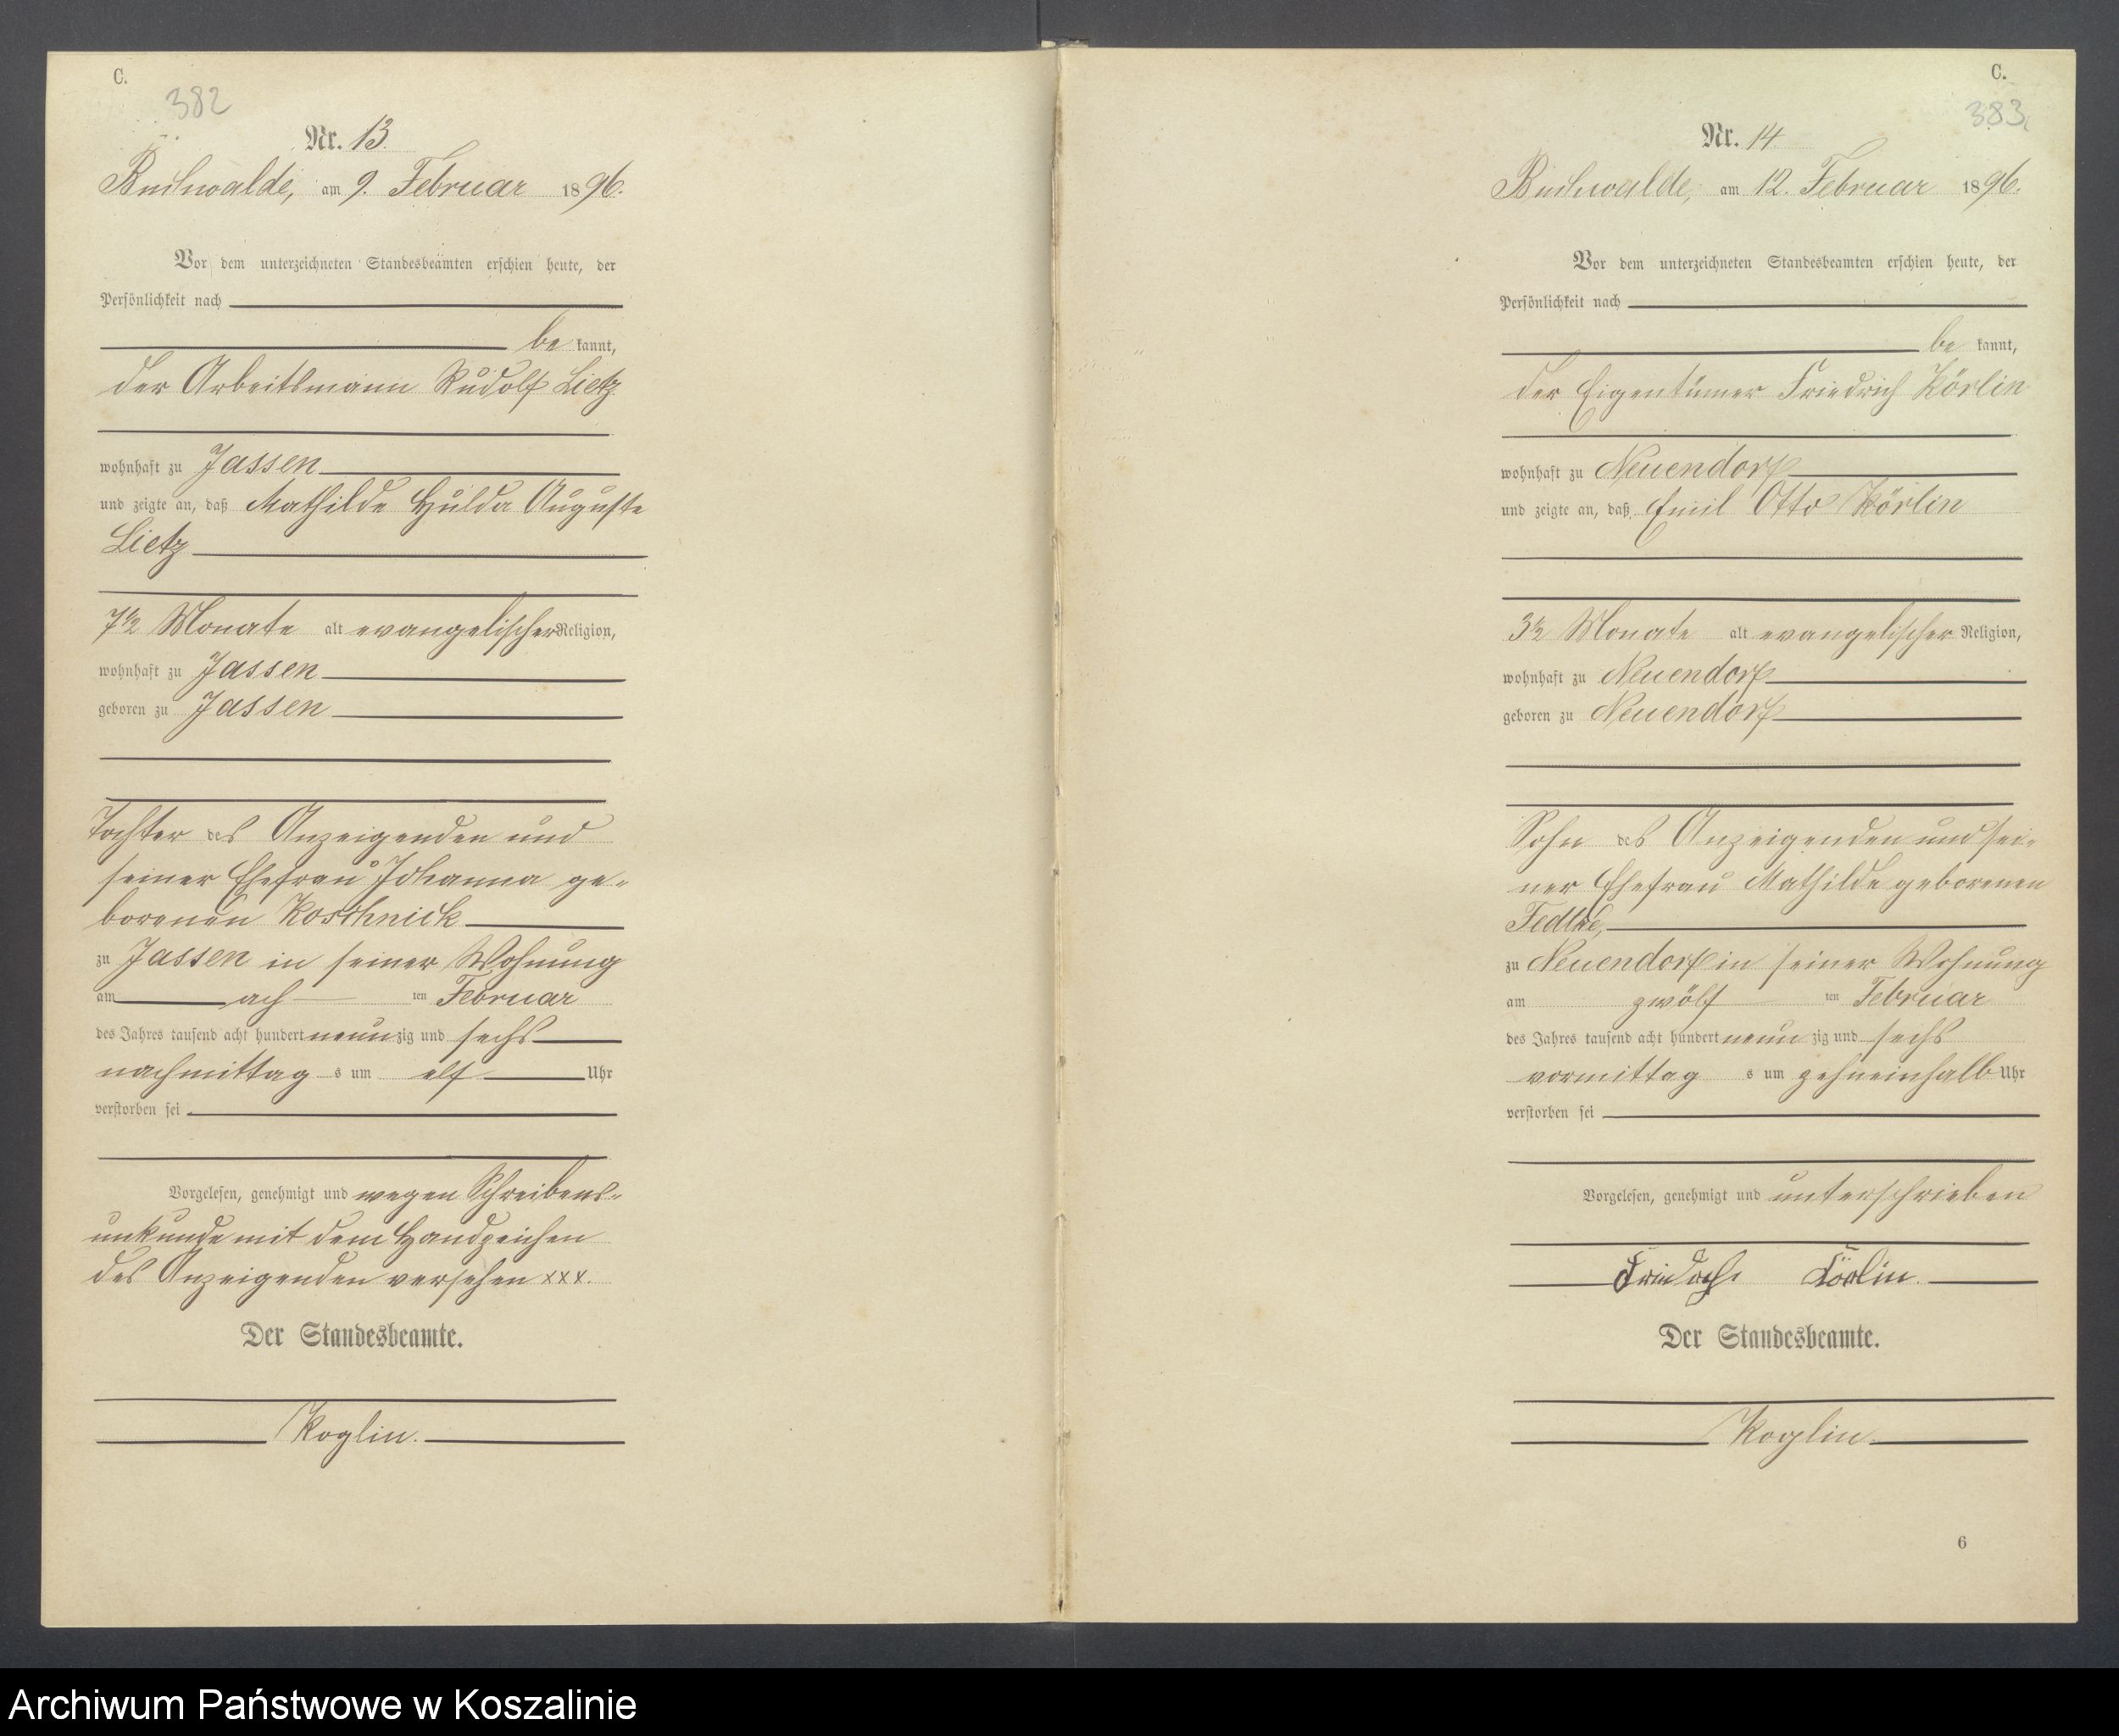 C.
382
Nr. 13.
Buchwalde, am 9. Februar 1896.
Vor dem unterzeichneten Standesbeamten erschien heute, der
Persönlichkeit nach
be kannt,
der Arbeitsmann Rudolf Lietz
wohnhaft zu Jassen
und zeigte an, daß Mathilde Hulda Auguste
Lietz
7 1/2 Monate alt evangelischer Religion,
wohnhaft zu Jassen
geboren zu Jassen
Tochter des Anzeigenden und
seiner Ehefrau Johanna ge-
borenen Koschnick
zu Jassen in seiner Wohnung
am ach ten Februar
des Jahres tausend acht hundert neun zig und sechs
nachmittag s um elf Uhr
verstorben sei
Vorgelesen, genehmigt und wegen Schreibens-
unkunde mit dem Handzeichen
des Anzeigenden versehen xxx.
Der Standesbeamte.
Koglin.
C.
383
Nr. 14
Buchwalde, am 12. Februar 1896.
Vor dem unterzeichneten Standesbeamten erschien heute, der
Persönlichkeit nach
be kannt,
der Eigentümer Friedrich Körlin
wohnhaft zu Neuendorf
und zeigte an, daß Emil Otto Körlin
3 1/2 Monate alt evangelischer Religion,
wohnhaft zu Neuendorf
geboren zu Neuendorf
Sohn des Anzeigenden und sei-
ner Ehefrau Mathilde geborenen
Fedtke,
zu Neuendorf in seiner Wohnung
am zwölf ten Februar
des Jahres tausend acht hundert neun zig und sechs
vormittag s um zehneinhalb Uhr
verstorben sei
Vorgelesen, genehmigt und unterschrieben
Friedrich Körlin.
Der Standesbeamte.
Koglin.
6
Archiwum Państwowe w Koszalinie